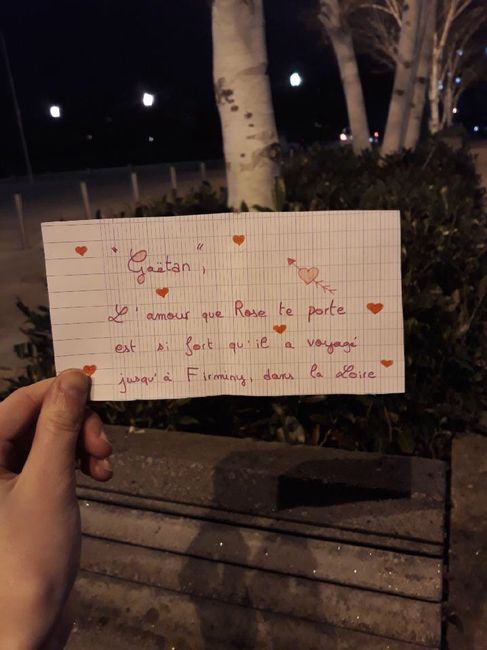 "Gaëtan",
L'amour que Rose te porte
est si fort qu'il a voyagé
jusqu'à Firminy, dans la Loire